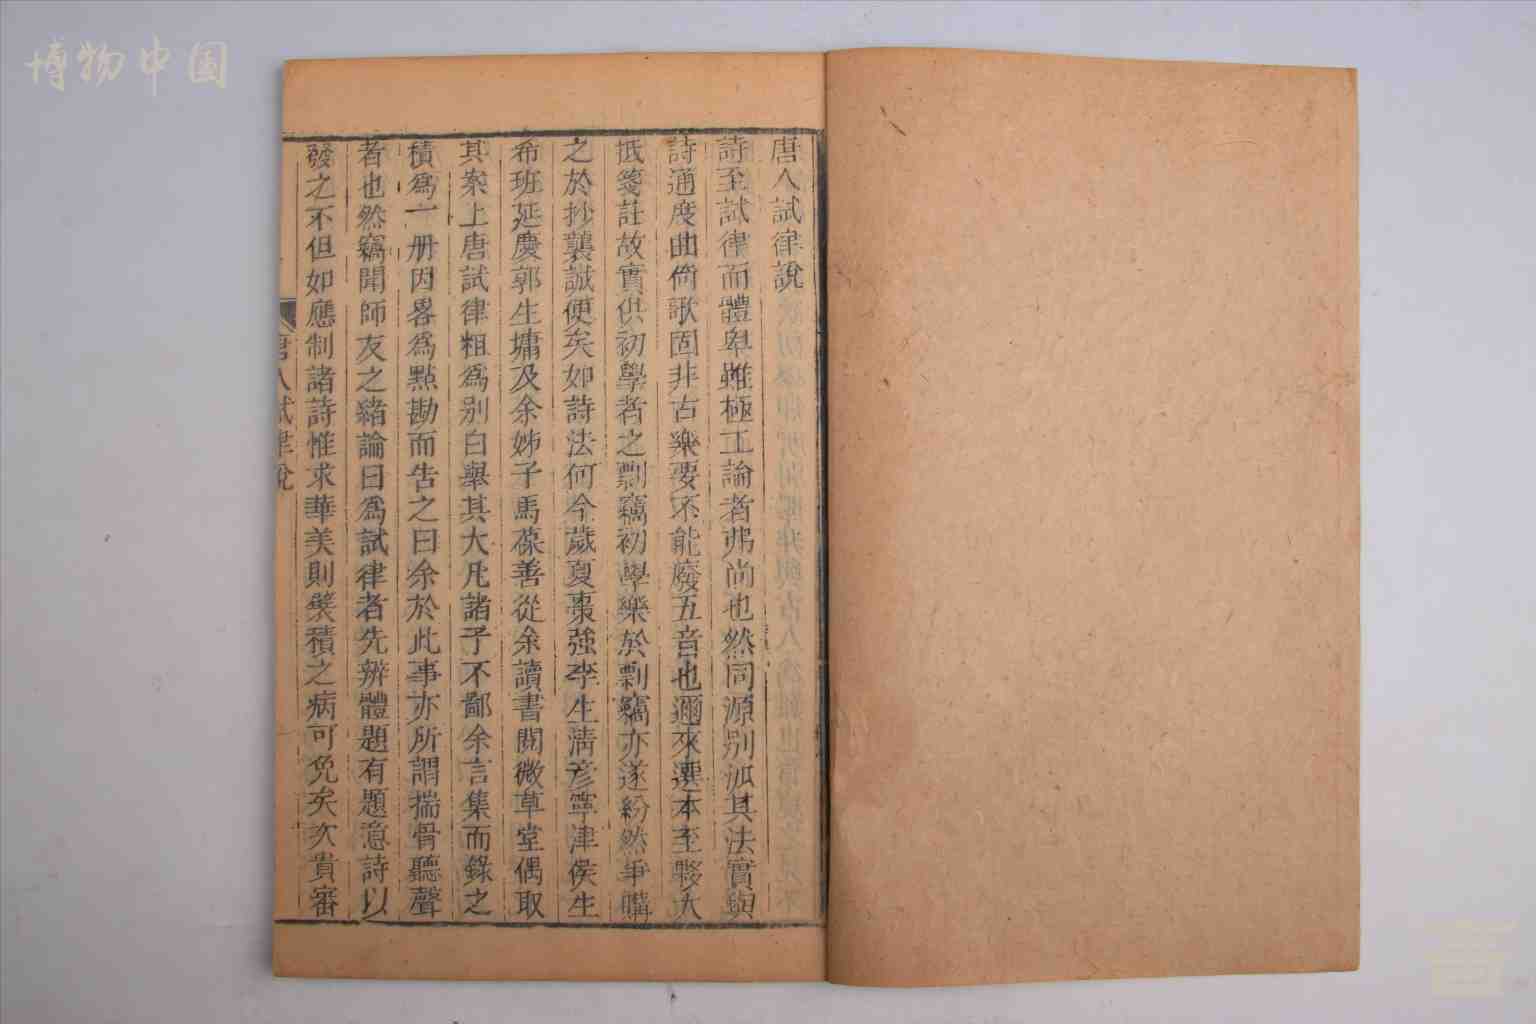 博物中国
唐人試律說
詩至試律而體卑雖極工論者弗尚也然同源别派其法實與
詩通度曲倚歌固非古樂要不能廢五音也邇來選本至夥大
抵箋註故實供初學者之剽竊初學樂於剽竊亦遂紛然爭購
之於抄襲誠便矣如詩法何今歲夏棗強李生清彦寧津侯生
希班延慶郭生墉及余姊子馬葆善從余讀書閱微草堂偶取
其案上唐試律粗爲别白舉其大凡諸子不鄙余言集而錄之
積爲一册因畧爲點勘而告之曰余於此事亦所謂揣骨聽聲
者也然竊聞師友之緒論曰爲試律者先辨體題有題意詩以
發之不但如應制諸詩惟求華美則襞積之病可免矣次貴審
唐人試律說